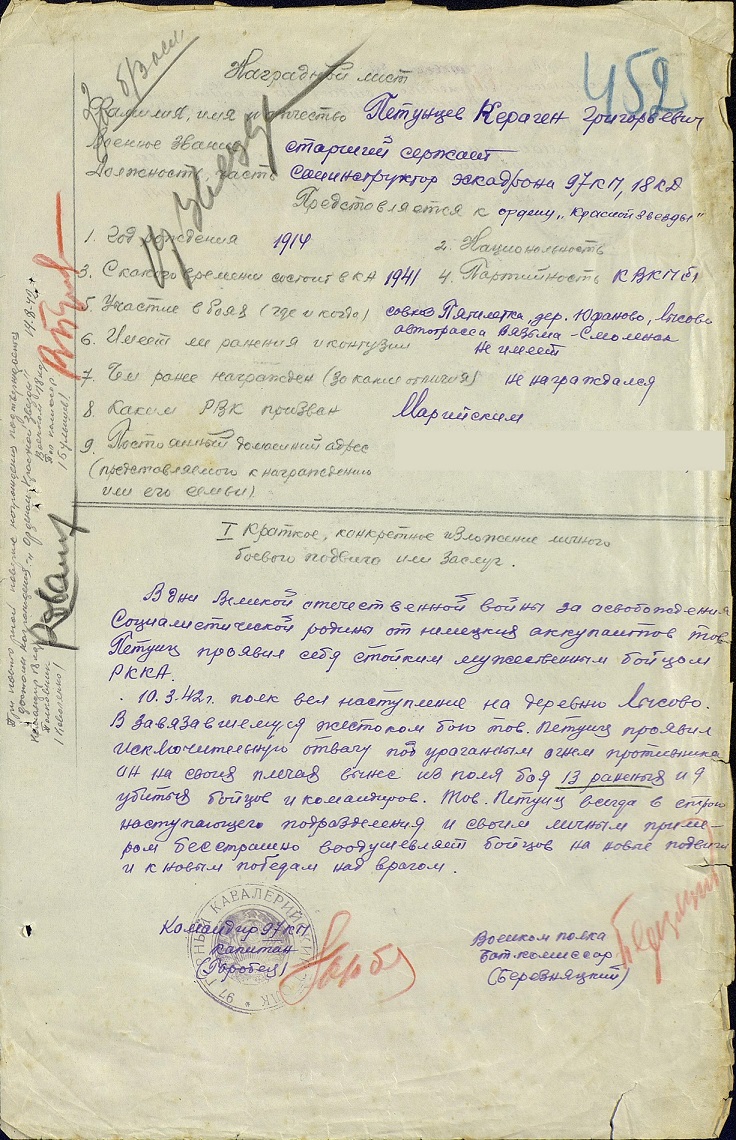 452
Наградной лист
Фамилия, имя и отчество Петунцев Кераген Григорьевич
Военное звание старший сержант
Должность, часть санинструктор эскадрона 97 КП, 18 КД
Представляется к ордену „Красной звезды"
1. Год рождения 1914 2. Национальность
3. С какого времени состоит в КА 1941 4. Партийность
5. Участие в боях (где и когда) совхоз Пятилетка, дер. Юханово, Лысово
автотрасса Вязьма - Смоленск
6. Имеет ли ранения и контузии не имеет
7. Чем ранее награжден (за какие отличия) не награждался
8. Каким РВК призван Марийским
9. Постоянный домашний адрес
(представляемого к награждению
или его семьи)
I Краткое, конкретное изложение личного
боевого подвига или заслуг.
В дни Великой отечественной войны за освобождения
Социалистической родины от немецких аккупантов тов.
Петунц проявил себя стойким мужественным бойцом
РККА.
10.3.42 г. полк вел наступление на деревню Лысово.
В завязавшемуся жестоком бою тов. Петунц проявил
исключительную отвагу под ураганным огнем противника
он на своих плечах вынес из поля боя 13 раненых и 9
убитых бойцов и командиров. Тов. Петунц всегда в строю
наступающего подразделения и своим личным приме-
ром бесстрашно воодушевляет бойцов на новые подвиги
и к новым победам над врагом.
Командир 97 КП
капитан
(Горобец)
Военком полка
бат. комиссар
(Березняцкий)
97 ГОРНЫЙ КАВАЛЕРИЙСКИЙ ПОЛК